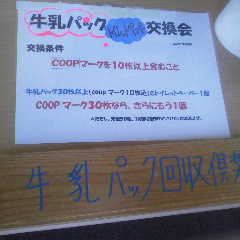 牛乳パック トイレットペーパー 交換会
交換条件
COOPマークを10枚以上含むこと
牛乳パック30枚以上(coopマーク10枚込)でトイレットペーパー1個
COOPマーク30枚なら、さらにもう1個
牛乳パック回収倶楽